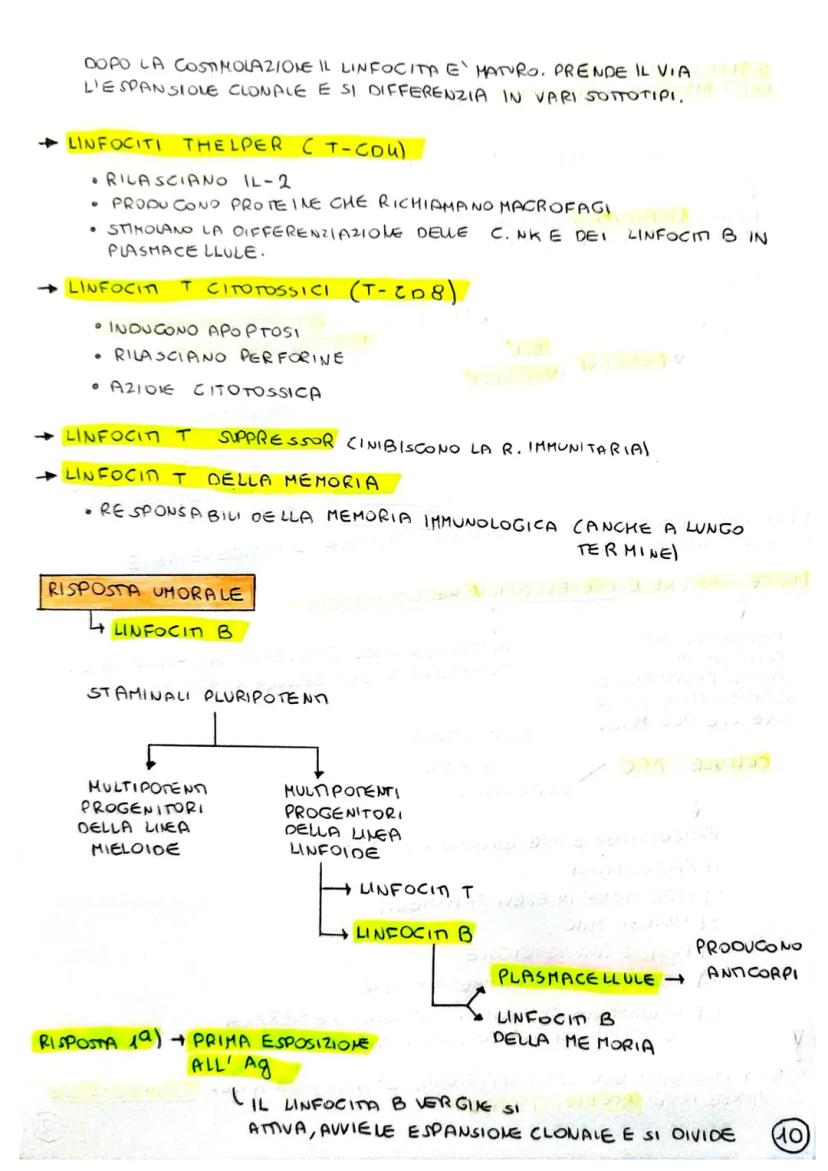 DOPO LA COSTIMOLAZIONE IL LINFOCITA E' MATURO. PRENDE IL VIA
L'ESPANSIONE CLONALE E SI DIFFERENZIA IN VARI SOTTOTIPI.
→ LINFOCITI THELPER (T-CD4)
• RILASCIANO IL-2
• PRODUCONO PROTEINE CHE RICHIAMANO MACROFAGI
• STIMOLANO LA DIFFERENZIAZIONE DELLE C. NK E DEI LINFOCITI B IN
PLASMACELLULE.
→ LINFOCITI T CITOTOSSICI (T-CD8)
• INDUCONO APOPTOSI
• RILASCIANO PERFORINE
• AZIONE CITOTOSSICA
→ LINFOCITI T SUPPRESSOR (INIBISCONO LA R. IMMUNITARIA)
→ LINFOCITI T DELLA MEMORIA
• RESPONSABILI DELLA MEMORIA IMMUNOLOGICA (ANCHE A LUNGO
TERMINE)
RISPOSTA UMORALE
LINFOCITI B
STAMINALI PLURIPOTENTI
MULTIPOTENTI
PROGENITORI
DELLA LINEA
MIELOIDE
MULTIPOTENTI
PROGENITORI
DELLA LINEA
LINFOIDE
→ LINFOCITI T
→ LINFOCITI B
PLASMACELLULE → PRODUCONO
ANTICORPI
LINFOCITI B
DELLA MEMORIA
RISPOSTA 1a) → PRIMA ESPOSIZIONE
ALL' Ag
IL LINFOCITA B VERGINE SI
ATTIVA, AVVIENE ESPANSIONE CLONALE E SI DIVIDE
10